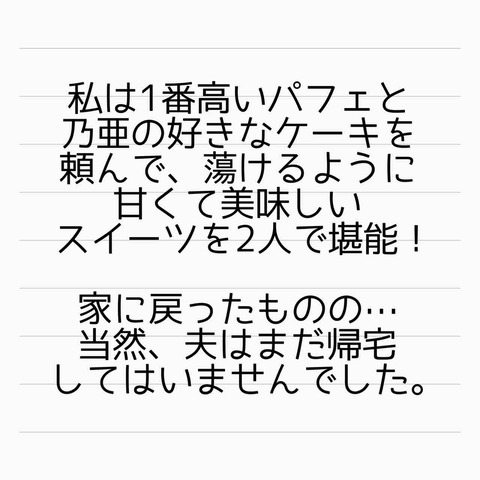 私は1番高いパフェと
乃亜の好きなケーキを
頼んで、蕩けるように
甘くて美味しい
スイーツを2人で堪能！
家に戻ったものの…
当然、夫はまだ帰宅
してはいませんでした。